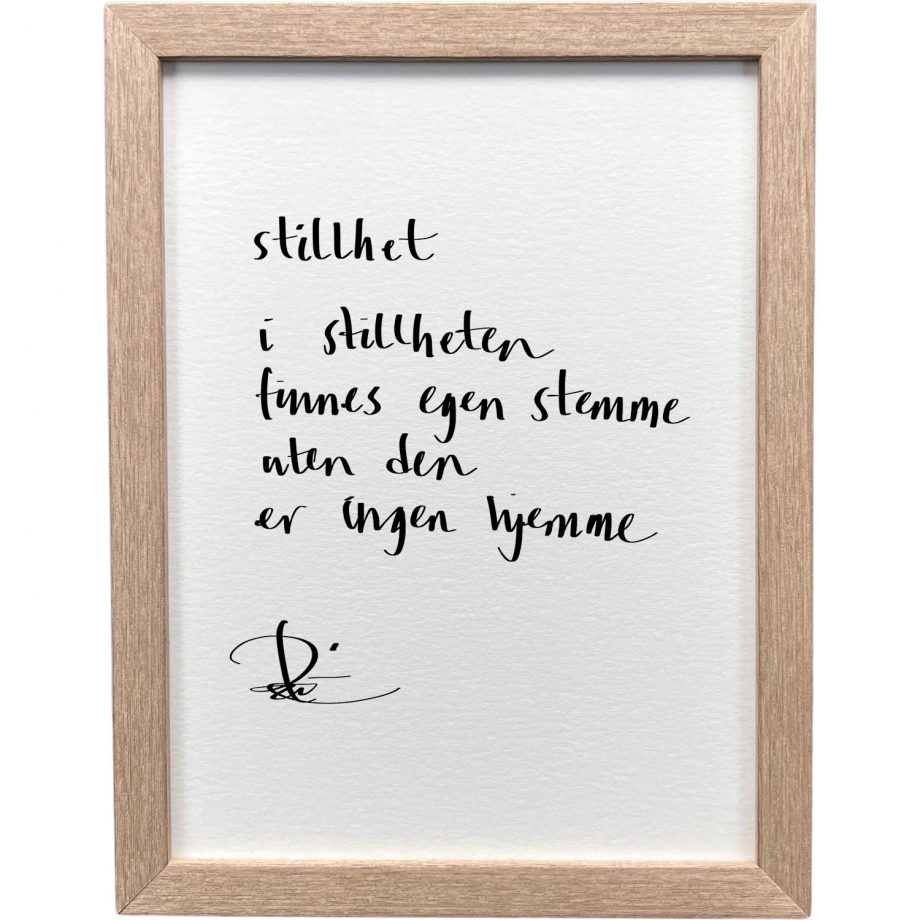 stillhet
i stillheten
finnes egen stemme
uten den
er ingen hjemme